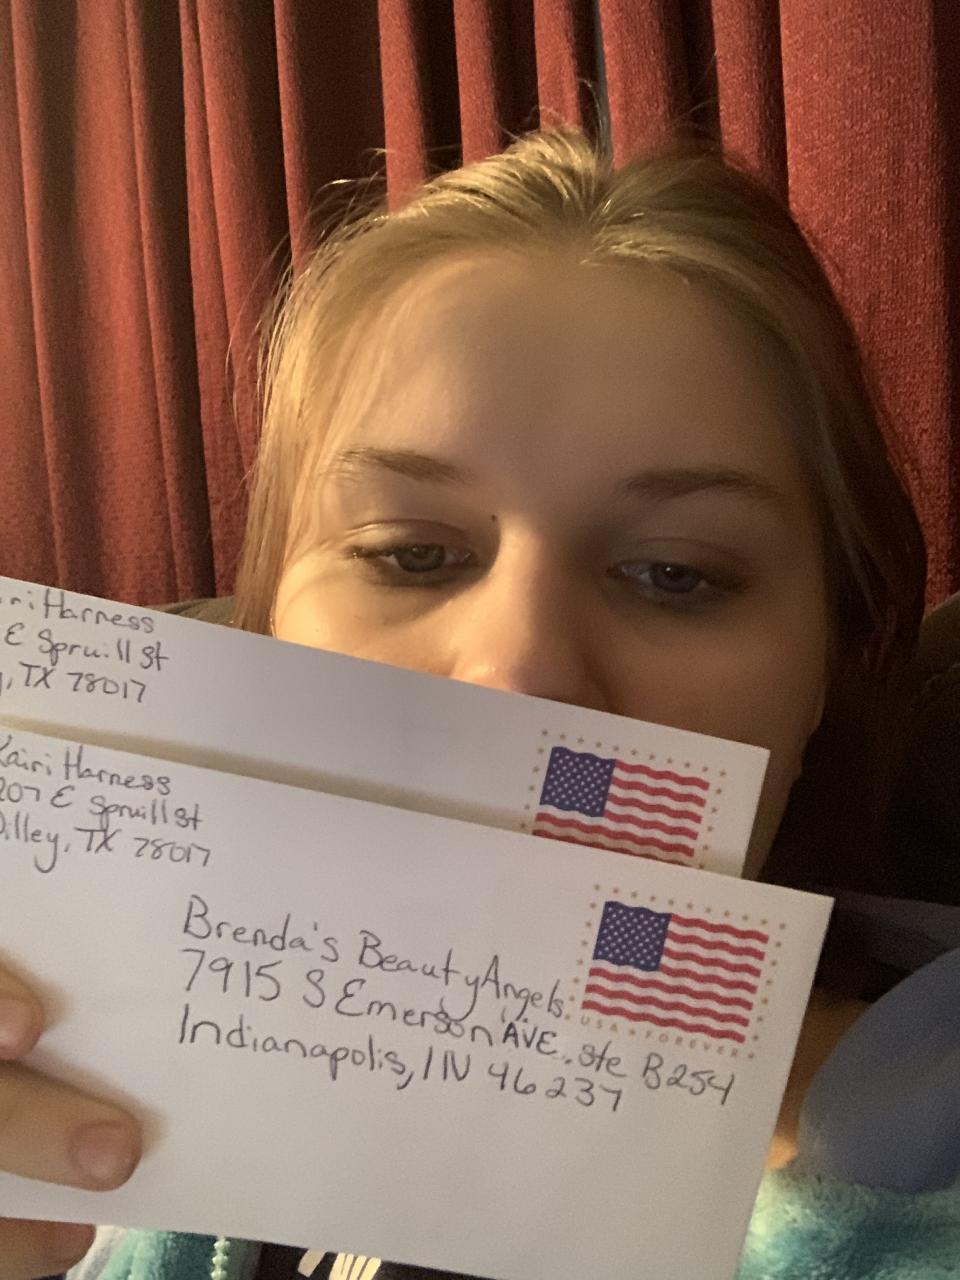 ri Harness
E Spruill St
, TX 78017
Kairi Harness
207 E Spruill St
Dilley, TX 78017
Brenda's Beauty Angels
7915 S Emerson AVE. Ste B254
Indianapolis, IN 46237
USA FOREVER